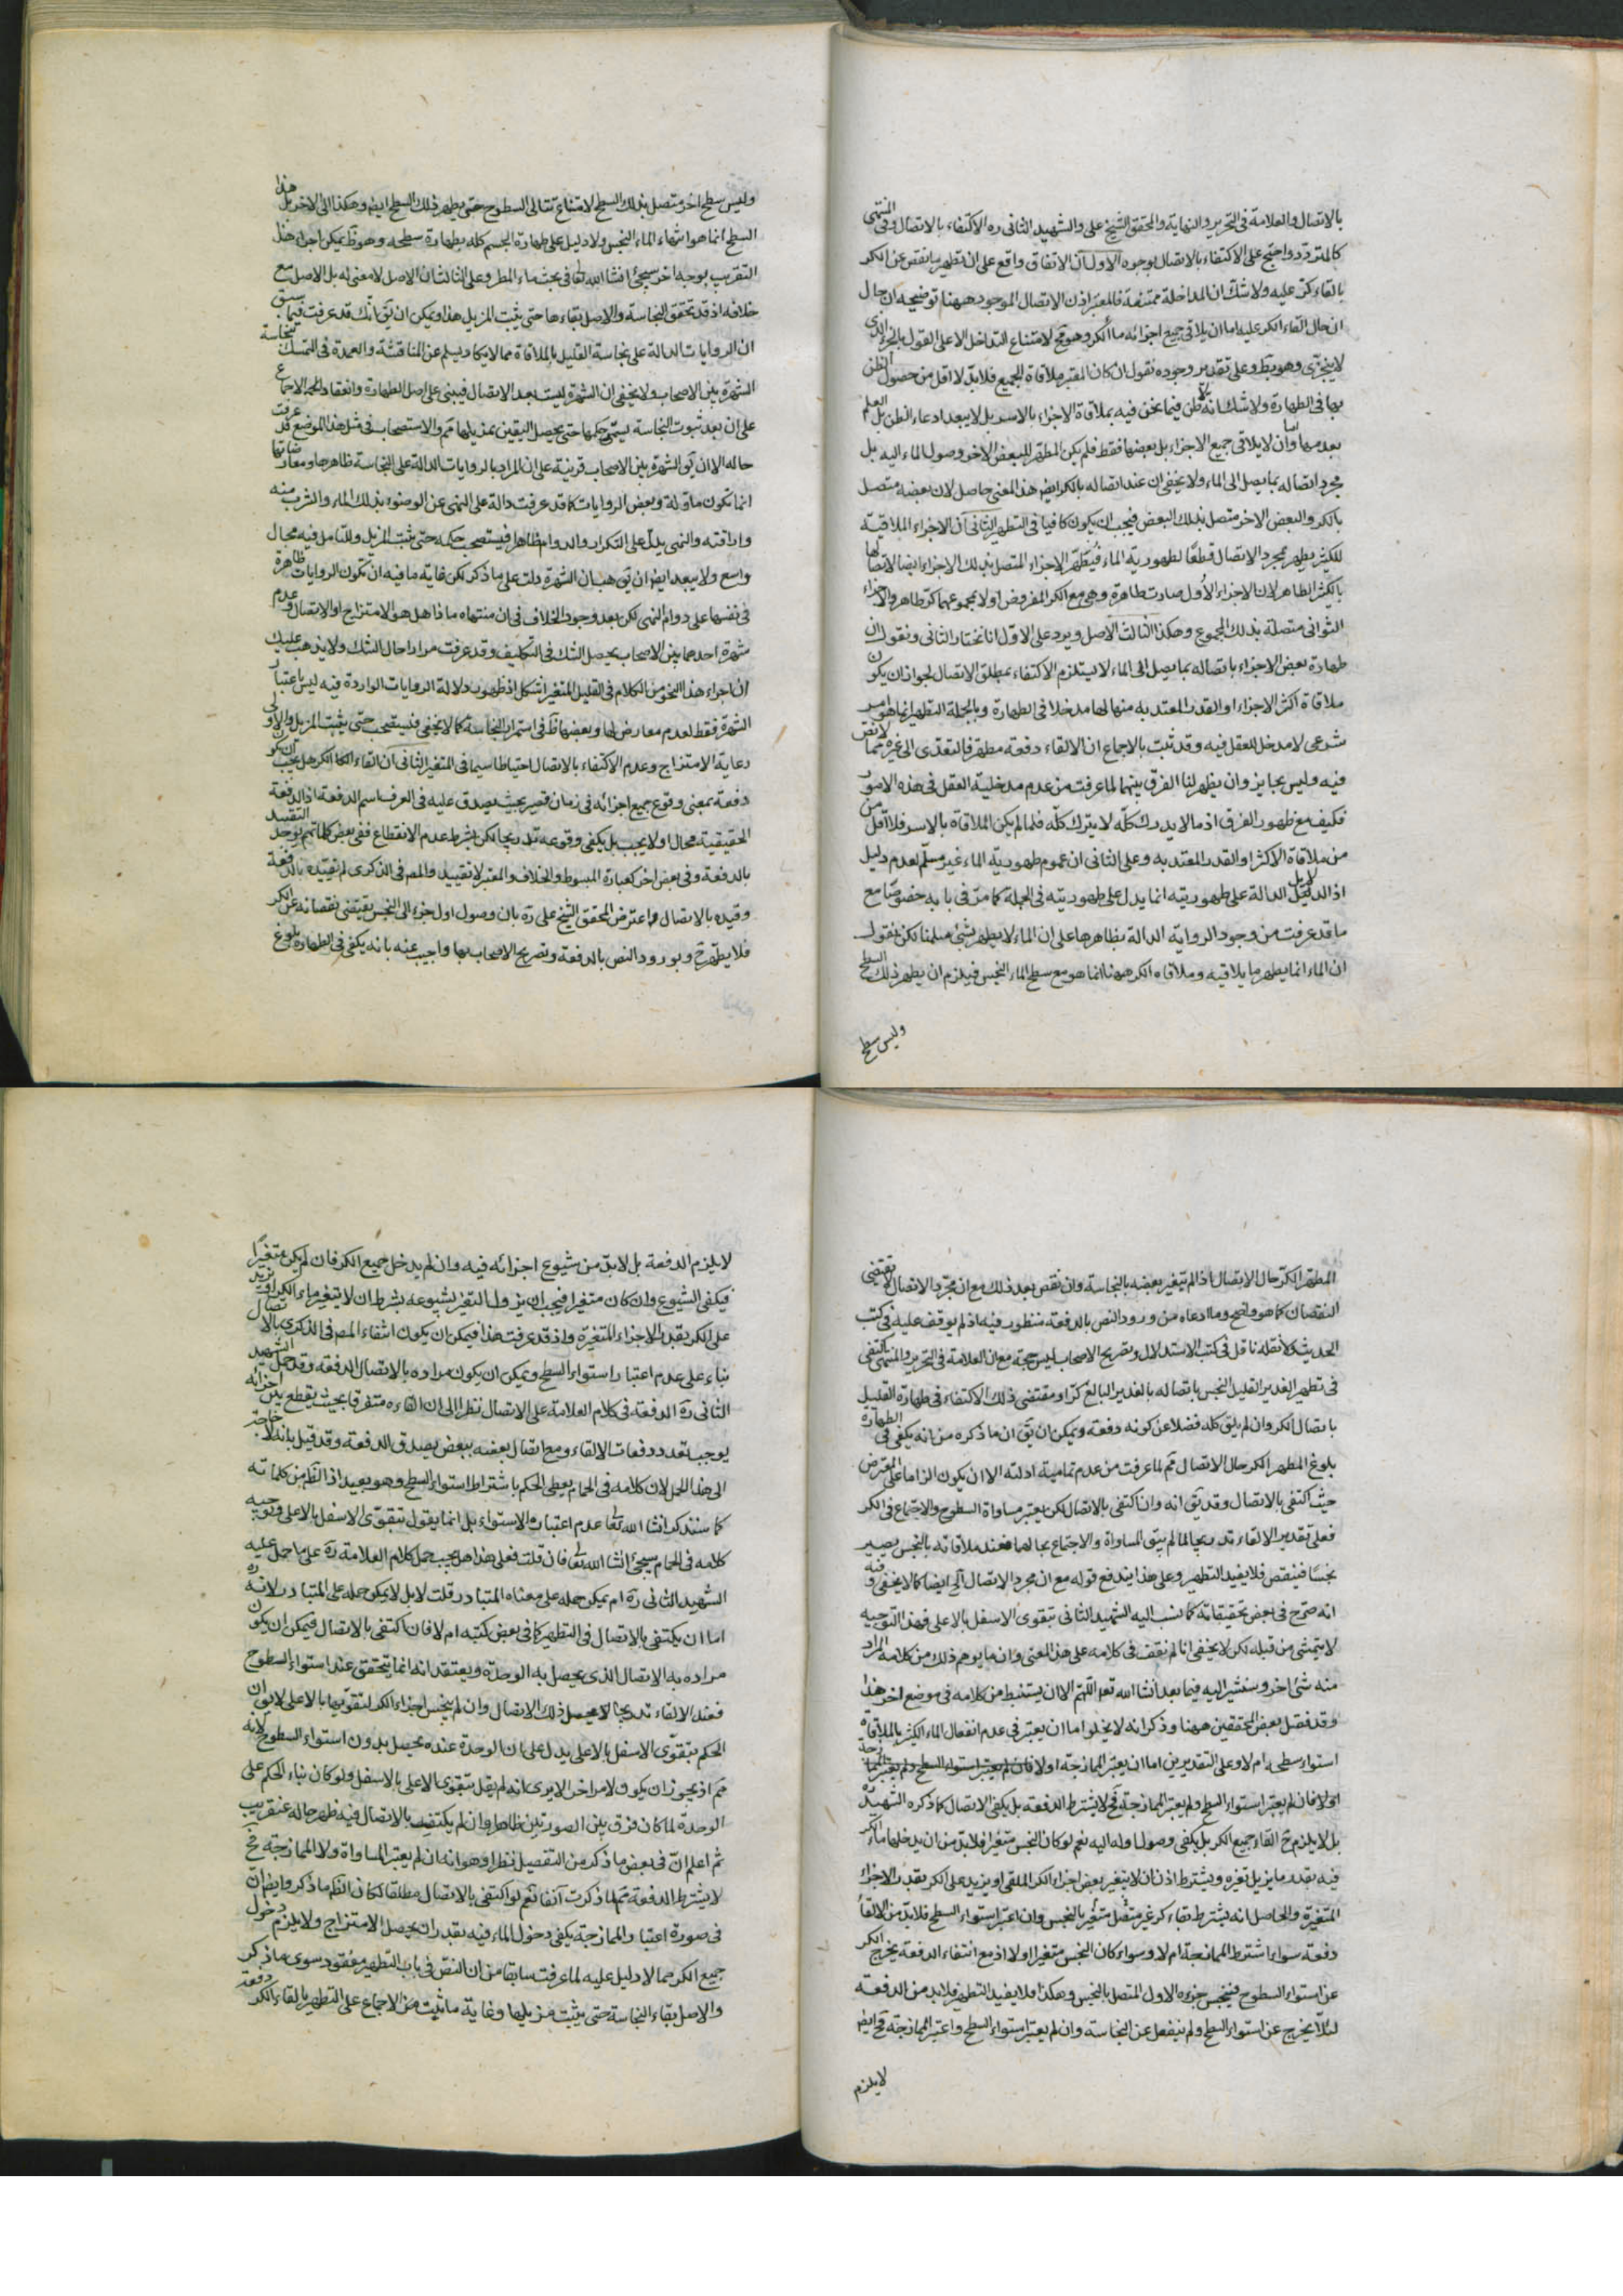 بالاتصال والعلامة فى التحرير والنهاية والمحقق الشيخ على والشهيد الثانى ره الاكتفاء بالاتصال وفى المنتهى
كالمتردد واحتج على الاكتفاء بالاتصال بوجوه الاول ان الاتفاق واقع على ان تطهير ما نقص عن الكر
بالقاء كر عليه ولا شك ان المداخلة ممتنعة فالمعتبر اذن الاتصال الموجود ههنا توضيحه ان حال
ان حال القاء الكر عليه اما ان يلاقى جميع اجزائه ماء الكر وهو مح لامتناع التداخل الا على القول بالجزء الذى
لا يتجزى وهو بط وعلى تقدير وجوده نقول ان كان المعتبر ملاقاة الجميع فلابد لا اقل من حصول الظن
بها فى الطهارة ولا شك انه لا ظن فيما نحن فيه بملاقاة الاجزاء بالاسر بل لا يبعد ادعاء الظن بل العلم
بعدمها واما ان لا يلاقى جميع الاجزاء بل بعضها فقط فلم يكن المطهر للبعض الاخر وصول الماء اليه بل
مجرد اتصاله بما يصل الى الماء ولا يخفى ان عند اتصاله بالكر ايض هذا المعنى حاصل لان بعضه متصل
بالكر والبعض الاخر متصل بذلك البعض فيجب ان يكون كافيا فى التطهير الثانى ان الاجزاء الملاقية
للكثير يطهر بمجرد الاتصال قطعا لطهورية الماء فيطهر الاجزاء المتصل بذلك الاجزاء ايضا لاتصالها
بالكثير الطاهر لان الاجزاء الأول صارت طاهرة وهى مع الكر المفروض اولا بمجموعهما كر طاهر والاجزاء
الثوانى متصلة بذلك المجموع وهكذا الثالث الاصل ويرد على الاول انا نختار الثانى ونقول ان
طهارة بعض الاجزاء باتصاله بما يصل الى الماء لا يستلزم الاكتفاء بمطلق الاتصال لجواز ان يكون
ملاقاة اكثر الاجزاء او القدر المعتد به منها لها مدخلا فى الطهارة وبالجملة التطهير انما هو امر
شرعى لا مدخل للعقل فيه وقد ثبت بالاجماع ان الالقاء دفعة مطهر فالتعدى الى غيره مما لا نص
فيه وليس بجايز وان يظهر لنا الفرق بينهما لما عرفت من عدم مدخلية العقل فى هذه الامور
فكيف مع ظهور الفرق اذ ما لا يدرك كله لا يترك كله فلما لم يكن الملاقاة بالاسر فلا اقل من
من ملاقاة الاكثر او القدر المعتد به وعلى الثانى ان عموم طهورية الماء غير مسلم لعدم دليل
اذ الدلايل الدالة على طهوريته انما يدل على طهوريته فى الجملة كما مر فى بابه خصوصا مع
ما قد عرفت من وجود الرواية الدالة بظاهرها على ان الماء لا يطهر بشئ سلمنا لكن نقول
ان الماء انما يطهر ما يلاقيه وملاقاه الكر ههنا انما هو مع سطح الماء النجس فيلزم ان يطهر ذلك السطح
وليس سطح
وليس سطح اخر متصل بذلك السطح لامتناع تتالى السطوح حتى يطهر ذلك السطح ايض وهكذا الى الاخر بل هذا
السطح انما هو انتهاء الماء النجس ولا دليل على طهارة الجسم كله بطهارة سطحه وهو ظ ويمكن اجراء هذا
التقريب بوجه اخر سيجئ انشا الله تعالى فى بحث ماء المطر وعلى الثالث ان الاصل لا معنى له بل الاصل مع
خلافه اذ قد تحقق النجاسة والاصل بقاءها حتى يثبت المزيل هذا ويمكن ان يق انك قد عرفت فيما سبق
ان الروايات الدالة على نجاسة القليل بالملاقاة مما لا يكاد يسلم عن المناقشة والعمدة فى التمسك بنجاسة
الشهرة بين الاصحاب ولا يخفى ان الشهرة ليست بعد الاتصال فيبنى على اصل الطهارة وانعقاد الاجماع
على ان بعد ثبوت النجاسة يستمر حكمها حتى يحصل اليقين بمزيلها مم والاستصحاب فى مثل هذا الموضع قد عرفت
حاله الا ان يق الشهرة بين الاصحاب قرينة على ان المراد بالروايات الدالة على النجاسة ظاهرها ومعارضاتها
انما تكون ماولة وبعض الروايات كما قد عرفت دالة على النهى عن الوضوء بذلك الماء والشرب منه
واراقته والنهى يدل على التكرار والدوام ظاهرا فيستصحب حكمه حتى يثبت المزيل وللتامل فيه مجال
واسع ولا يبعد ايض ان يق هب ان الشهرة دلت على ما ذكر لكن غاية ما فيه ان تكون الروايات ظاهرة
فى نفسها على دوام النهى لكن بعد وجود الخلاف فى ان منتهاه ما ذا هل هو الامتزاج او الاتصال وعدم
شهرة احدهما بين الاصحاب يحصل الشك فى التكليف وقد عرفت مرارا حال الشك ولا يذهب عليك
ان اجراء هذا النحو من الكلام فى القليل المتغير اشكل اذ ظهور دلالة الروايات الواردة فيه ليس باعتبار
الشهرة فقط لعدم معارض لها وبعضها ظ فى استمرار النجاسة كما لا يخفى فيستصحب حتى يثبت المزيل والاولى
رعاية الامتزاج وعدم الاكتفاء بالاتصال احتياطا سيما فى المتغير الثانى ان القاء الماء الكر هل يجب ان يكون
دفعة بمعنى وقوع جميع اجزائه فى زمان قصير بحيث يصدق عليه فى العرف اسم الدفعة اذ الدفعة
الحقيقية محال اولا يجب بل يكفى وقوعه تدريجا لكن بشرط عدم الانقطاع ففى بعض كلماتهم يوجد التقييد
بالدفعة وفى بعض اخر كعبارة المبسوط والخلاف والمعتبر لا تقييد والمص فى الذكرى لم يقيده بالدفعة
وقيده بالاتصال واعترض المحقق الشيخ على ره بان وصول اول جزء الى النجس يقتضى نقصانه عن الكر
فلا يطهر ح وبورود النص بالدفعة وتصريح الاصحاب بها واجيب عنه بانه يكفى فى الطهارة بلوغ
المطهر الكر حال الاتصال اذ لم يتغير بعضه بالنجاسة وان نقص بعد ذلك مع ان مجرد الاتصال لا يقتضى
النقصان كما هو واضح وما ادعاه من ورود النص بالدفعة منظور فيه اذ لم يوقف عليه فى كتب
الحديث ولا نقله ناقل فى كتب الاستدلال وتصريح الاصحاب ليس حجة مع ان العلامة فى التحرير والمنتهى اكتفى
فى تطهير الغدير القليل النجس باتصاله بالغدير البالغ كرا ومقتضى ذلك الاكتفاء فى طهارة القليل
باتصال الكر وان لم يلق كله فضلا عن كونه دفعة ويمكن ان يق ان ما ذكره من انه يكفى فى الطهارة
بلوغ المطهر الكر حال الاتصال مم لما عرفت من عدم تمامية ادلته الا ان يكون الزاما على المعترض
حيث اكتفى بالاتصال وقد يق انه وان اكتفى بالاتصال لكن يعتبر مساواة السطوح والاجتماع فى الكر
فعلى تقدير الالقاء تدريجا لما لم يبق المساواة والاجتماع بحالهما فعند ملاقاته بالنجس يصير
نجسا فينقص فلا يفيد التطهير وعلى هذا يندفع قوله مع ان مجرد الاتصال الخ ايضا كما لا يخفى وفيه
انه صرح فى بعض تحقيقاته كما نسب اليه الشهيد الثانى بتقوى الاسفل بالاعلى فهذا التوجيه
لا يتمشى من قبله لكن لا يخفى انا لم نقف فى كلامه على هذا المعنى وان ما يوهم ذلك من كلامه المراد
منه شئ اخر وسنشير اليه فيما بعد انشا الله تعالى اللهم الا ان يستنبط من كلامه فى موضع اخر هذا
وقد فصل بعض المحققين ههنا وذكر انه لا يخلو اما ان يعتبر فى عدم انفعال الماء الكثير بالملاقاة
استواء سطحه ام لا وعلى التقديرين اما ان يعتبر الممازجة اولا
اولا فان لم يعتبر استواء السطح ولم يعتبر الممازجة فح لا يشترط الدفعة بل يكفى الاتصال كما ذكره الشهيد ره
بل لا يلزم ح القاء جميع الكر بل يكفى وصول اوله اليه نعم لو كان النجس متغيرا فلابد من ان يدخلها ماء الكر
فيه بقدر ما يزيل تغيره ويشترط اذن ان لا يتغير بعض اجزاء الكر الملقى او يزيد على الكر بقدر الاجزاء
المتغيرة والحاصل انه يشترط بقاء كر غير منفصل متغير بالنجس وان اعتبر استواء السطح فلابد من الالقاء
دفعة سواء اشترط الممازجة ام لا وسواء كان النجس متغيرا اولا اذ مع انتفاء الدفعة يخرج الكر
عن استواء السطوح فينجس جزءه الاول المتصل بالنجس وهكذا فلا يفيد التطهير فلابد من الدفعة
لئلا يخرج عن استواء السطح ولم ينفعل عن النجاسة وان لم يعتبر استواء السطح واعتبر الممازجة فح ايض
لا يلزم
لا يلزم الدفعة بل لابد من شيوع اجزائه فيه وان لم يدخل جميع الكر فان لم يكن متغيرا
فيكفى الشيوع وان كان متغيرا فيجب ان يزول التغير بشيوعه بشرط ان لا يتغير ماء الكر او يزيد
على الكر بقدر الاجزاء المتغيرة واذ قد عرفت هذا فيمكن ان يكون اكتفاء المص فى الذكرى بالاتصال
بناء على عدم اعتبار استواء السطح ويمكن ان يكون مراده بالاتصال الدفعة وقد حمل الشهيد
الثانى ره الدفعة فى كلام العلامة على الاتصال نظرا الى ان القاءه متفرقا بحيث يقطع بين اجزائه
يوجب تعدد دفعات الالقاء ومع اتصال بعضه ببعض يصدق الدفعة وقد قيل بانه لا حاجة
الى هذا الحمل لان كلامه فى الحمام يعطى الحكم باشتراط استواء السطح وهو بعيد اذ الظ من كلماته
كما سنذكر انشا الله تعالى عدم اعتباره الاستواء بل انما يقول بتقوى الاسفل بالاعلى وتوجيه
كلامه فى الحمام سيجئ انشا الله تعالى فان قلت فعلى هذا هل يجب حمل كلام العلامة ره على ما حمل عليه
الشهيد الثانى ره ام يمكن حمله على معناه المتبادر قلت لا بل لا يمكن حمله على المتبادر لانه ره
اما ان يكتفى بالاتصال فى التطهير كما فى بعض كتبه ام لا فان اكتفى بالاتصال فيمكن ان يكون
مراده به الاتصال الذى يحصل به الوحدة ويعتقد انه انما يتحقق عند استواء السطوح
فعند الالقاء تدريجا لا يحصل ذلك الاتصال وان لم ينجس اجزاء الكر لتقويها بالاعلى لا يق ان
الحكم بتقوى الاسفل بالاعلى يدل على ان الوحدة عنده يحصل بدون استواء السطوح لانه
مم اذ يجوز ان يكون لامر اخر الا يرى انه لم يقل بتقوى الاعلى بالاسفل ولو كان بناء الحكم على
الوحدة لما كان فرق بين الصورتين ظاهرا وان لم يكتف بالاتصال فيه ظهر حاله عنقريب
ثم اعلم ان فى بعض ما ذكر من التفصيل نظرا وهو انه ان لم يعتبر المساواة ولا الممازجة فح
لا يشترط الدفعة مم لما ذكرت آنفا نعم لو اكتفى بالاتصال مطلقا لكان الظ ما ذكر وايض ان
فى صورة اعتبار الممازجة يكفى دخول الماء فيه بقدر ان يحصل الامتزاج ولا يلزم دخول
جميع الكر مما لا دليل عليه لما عرفت سابقا من ان النص فى باب التطهير مفقود سوى ما ذكر
والاصل بقاء النجاسة حتى يثبت مزيلها وغاية ما ثبت من الاجماع على التطهير بالقاء الكر دفعة